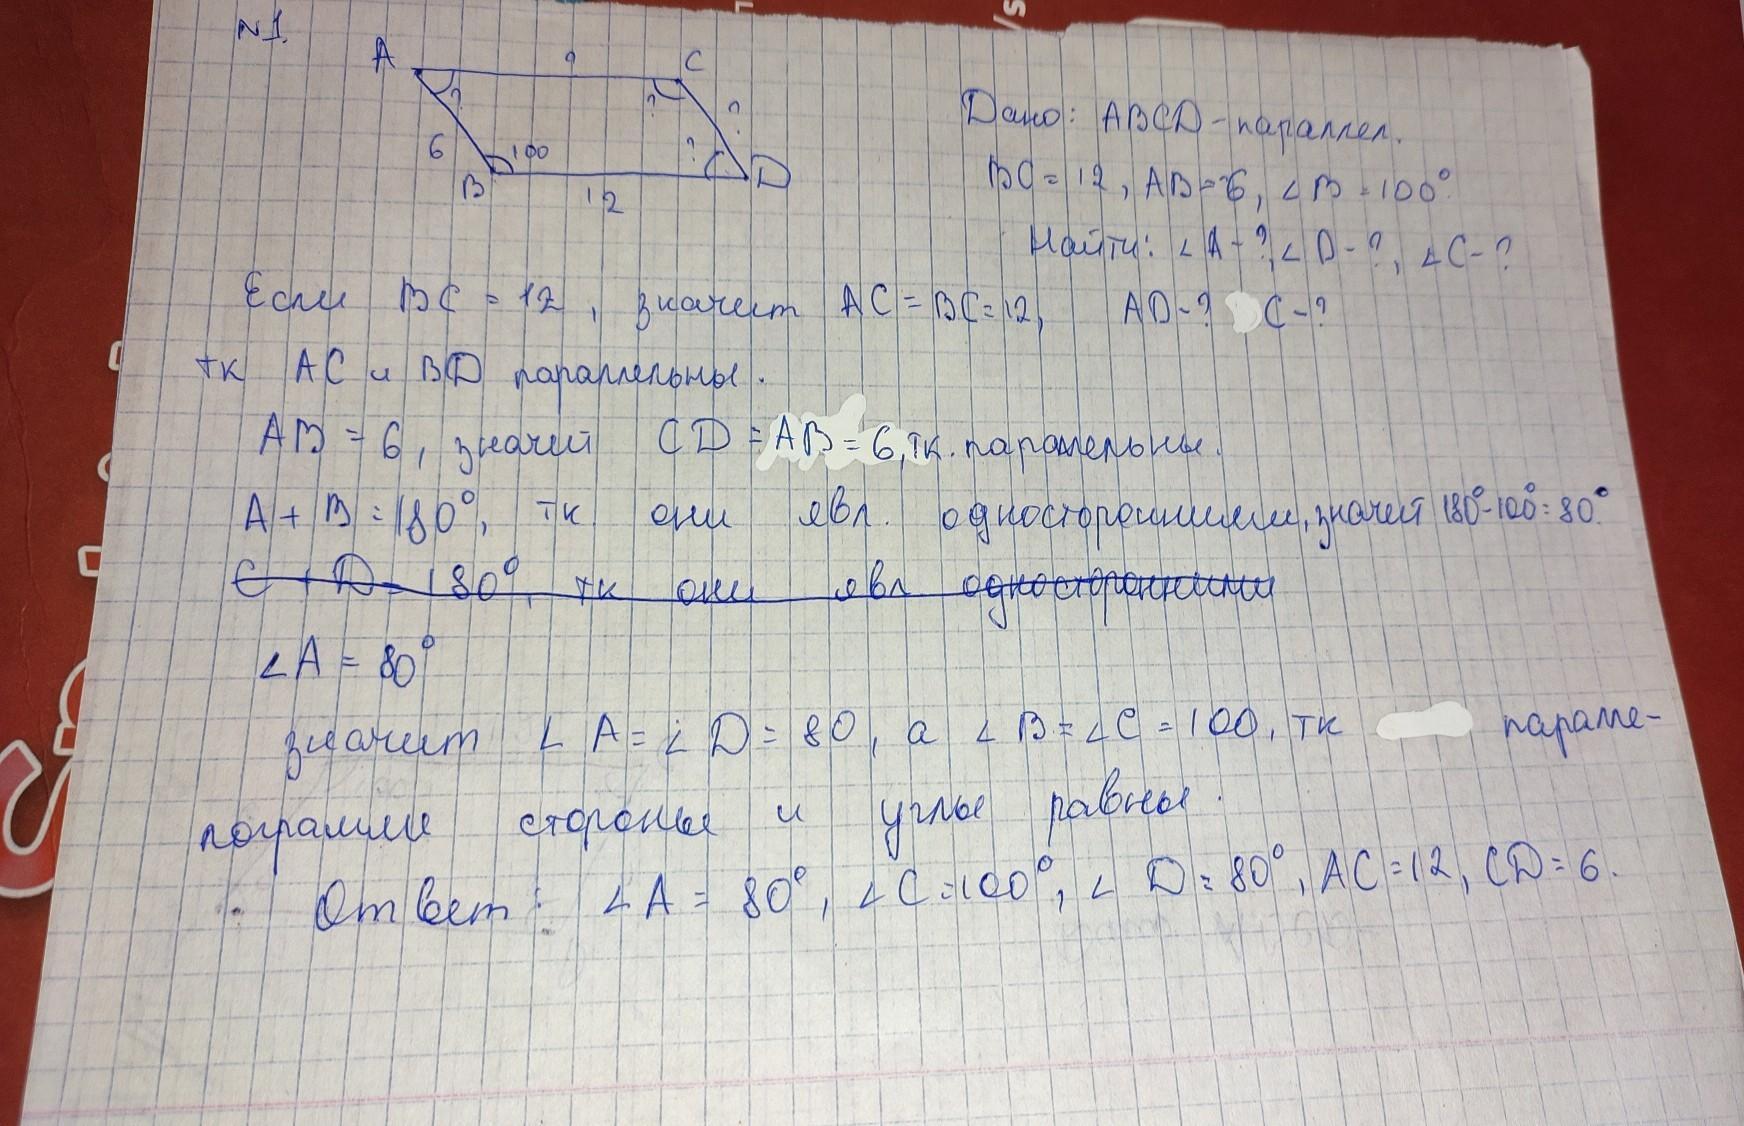 N1.
A ? C
? ? ?
6 100 ?
B 12 D
Дано: ABCD-параллел.
BC = 12, AB = 6, ∠B = 100°
Найти: ∠A - ?, ∠D - ?, ∠C - ?
Если BC = 12, значит AC = BC = 12, AD - ? C - ?
тк AC и BD параллельны.
AB = 6, значит CD = AB = 6, тк. параллельны.
A + B = 180°, тк они явл. односторонними, значит 180° - 100° = 80°.
C + D = 180°, тк они явл односторонними
∠A = 80°
значит ∠A = ∠D = 80, а ∠B = ∠C = 100, тк паралле-
лограмме стороны и углы равны.
Ответ: ∠A = 80°, ∠C = 100°, ∠D = 80°, AC = 12, CD = 6.